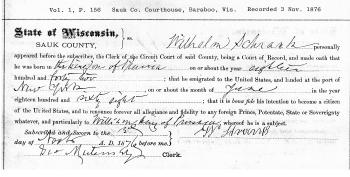 Vol. 1, P. 156 Sauk Co. Courthouse, Baraboo, Wis. Recorded 3 Nov. 1876
State of Wisconsin,
SAUK COUNTY, Wilhelm Schrank personally
appeared before the subscriber, the Clerk of the Circuit Court of said County, being a Court of Record, and made oath that
he was born in the kingdom of Prussia on or about the year eighteen
hundred and forty two ; that he emigrated to the United States, and landed at the port of
New York on or about the month of June in the year
eighteen hundred and sixty eight ; that it is bona fide his intention to become a citizen
of the United States, and to renounce forever all allegiance and fidelity to any foreign Prince, Potentate, State or Sovereignty
whatever, and particularly to William King of Prussia whereof he is a subject.
Subscribed and Sworn to this 3
day of Novbr A. D. 1876 before me,
Geo Clerk.